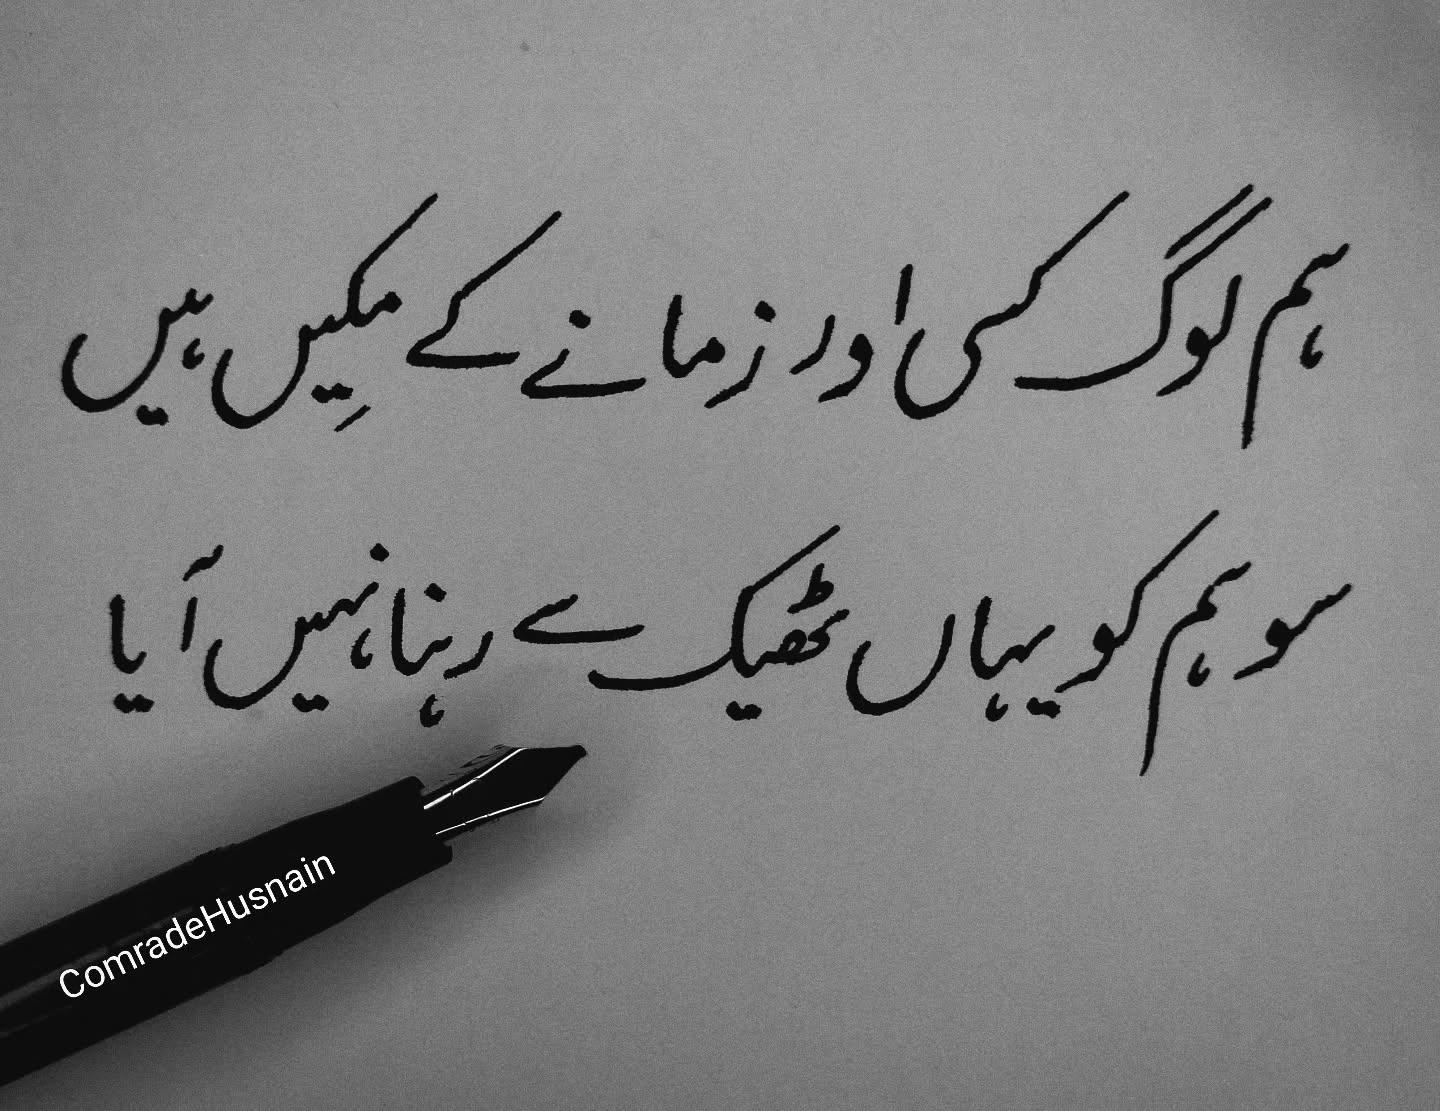 ہم لوگ کسی اور زمانے کے مکِیں ہیں
سو ہم کو یہاں ٹھیک سے رہنا نہیں آیا
ComradeHusnain